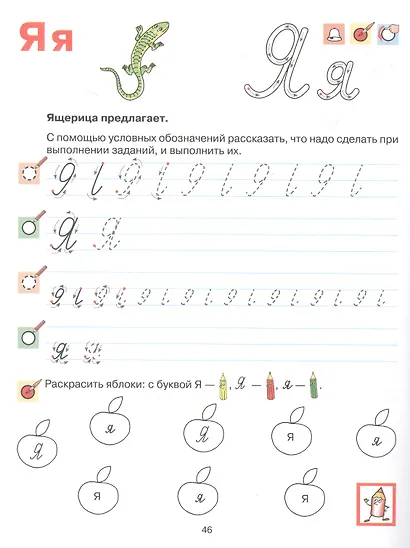 Яя Яя
Ящерица предлагает.
С помощью условных обозначений рассказать, что надо сделать при
выполнении заданий, и выполнить их.
Я Я
я я
Раскрасить яблоки: с буквой Я – , Я – , я – .
Я я Я Я я
Я я я
46